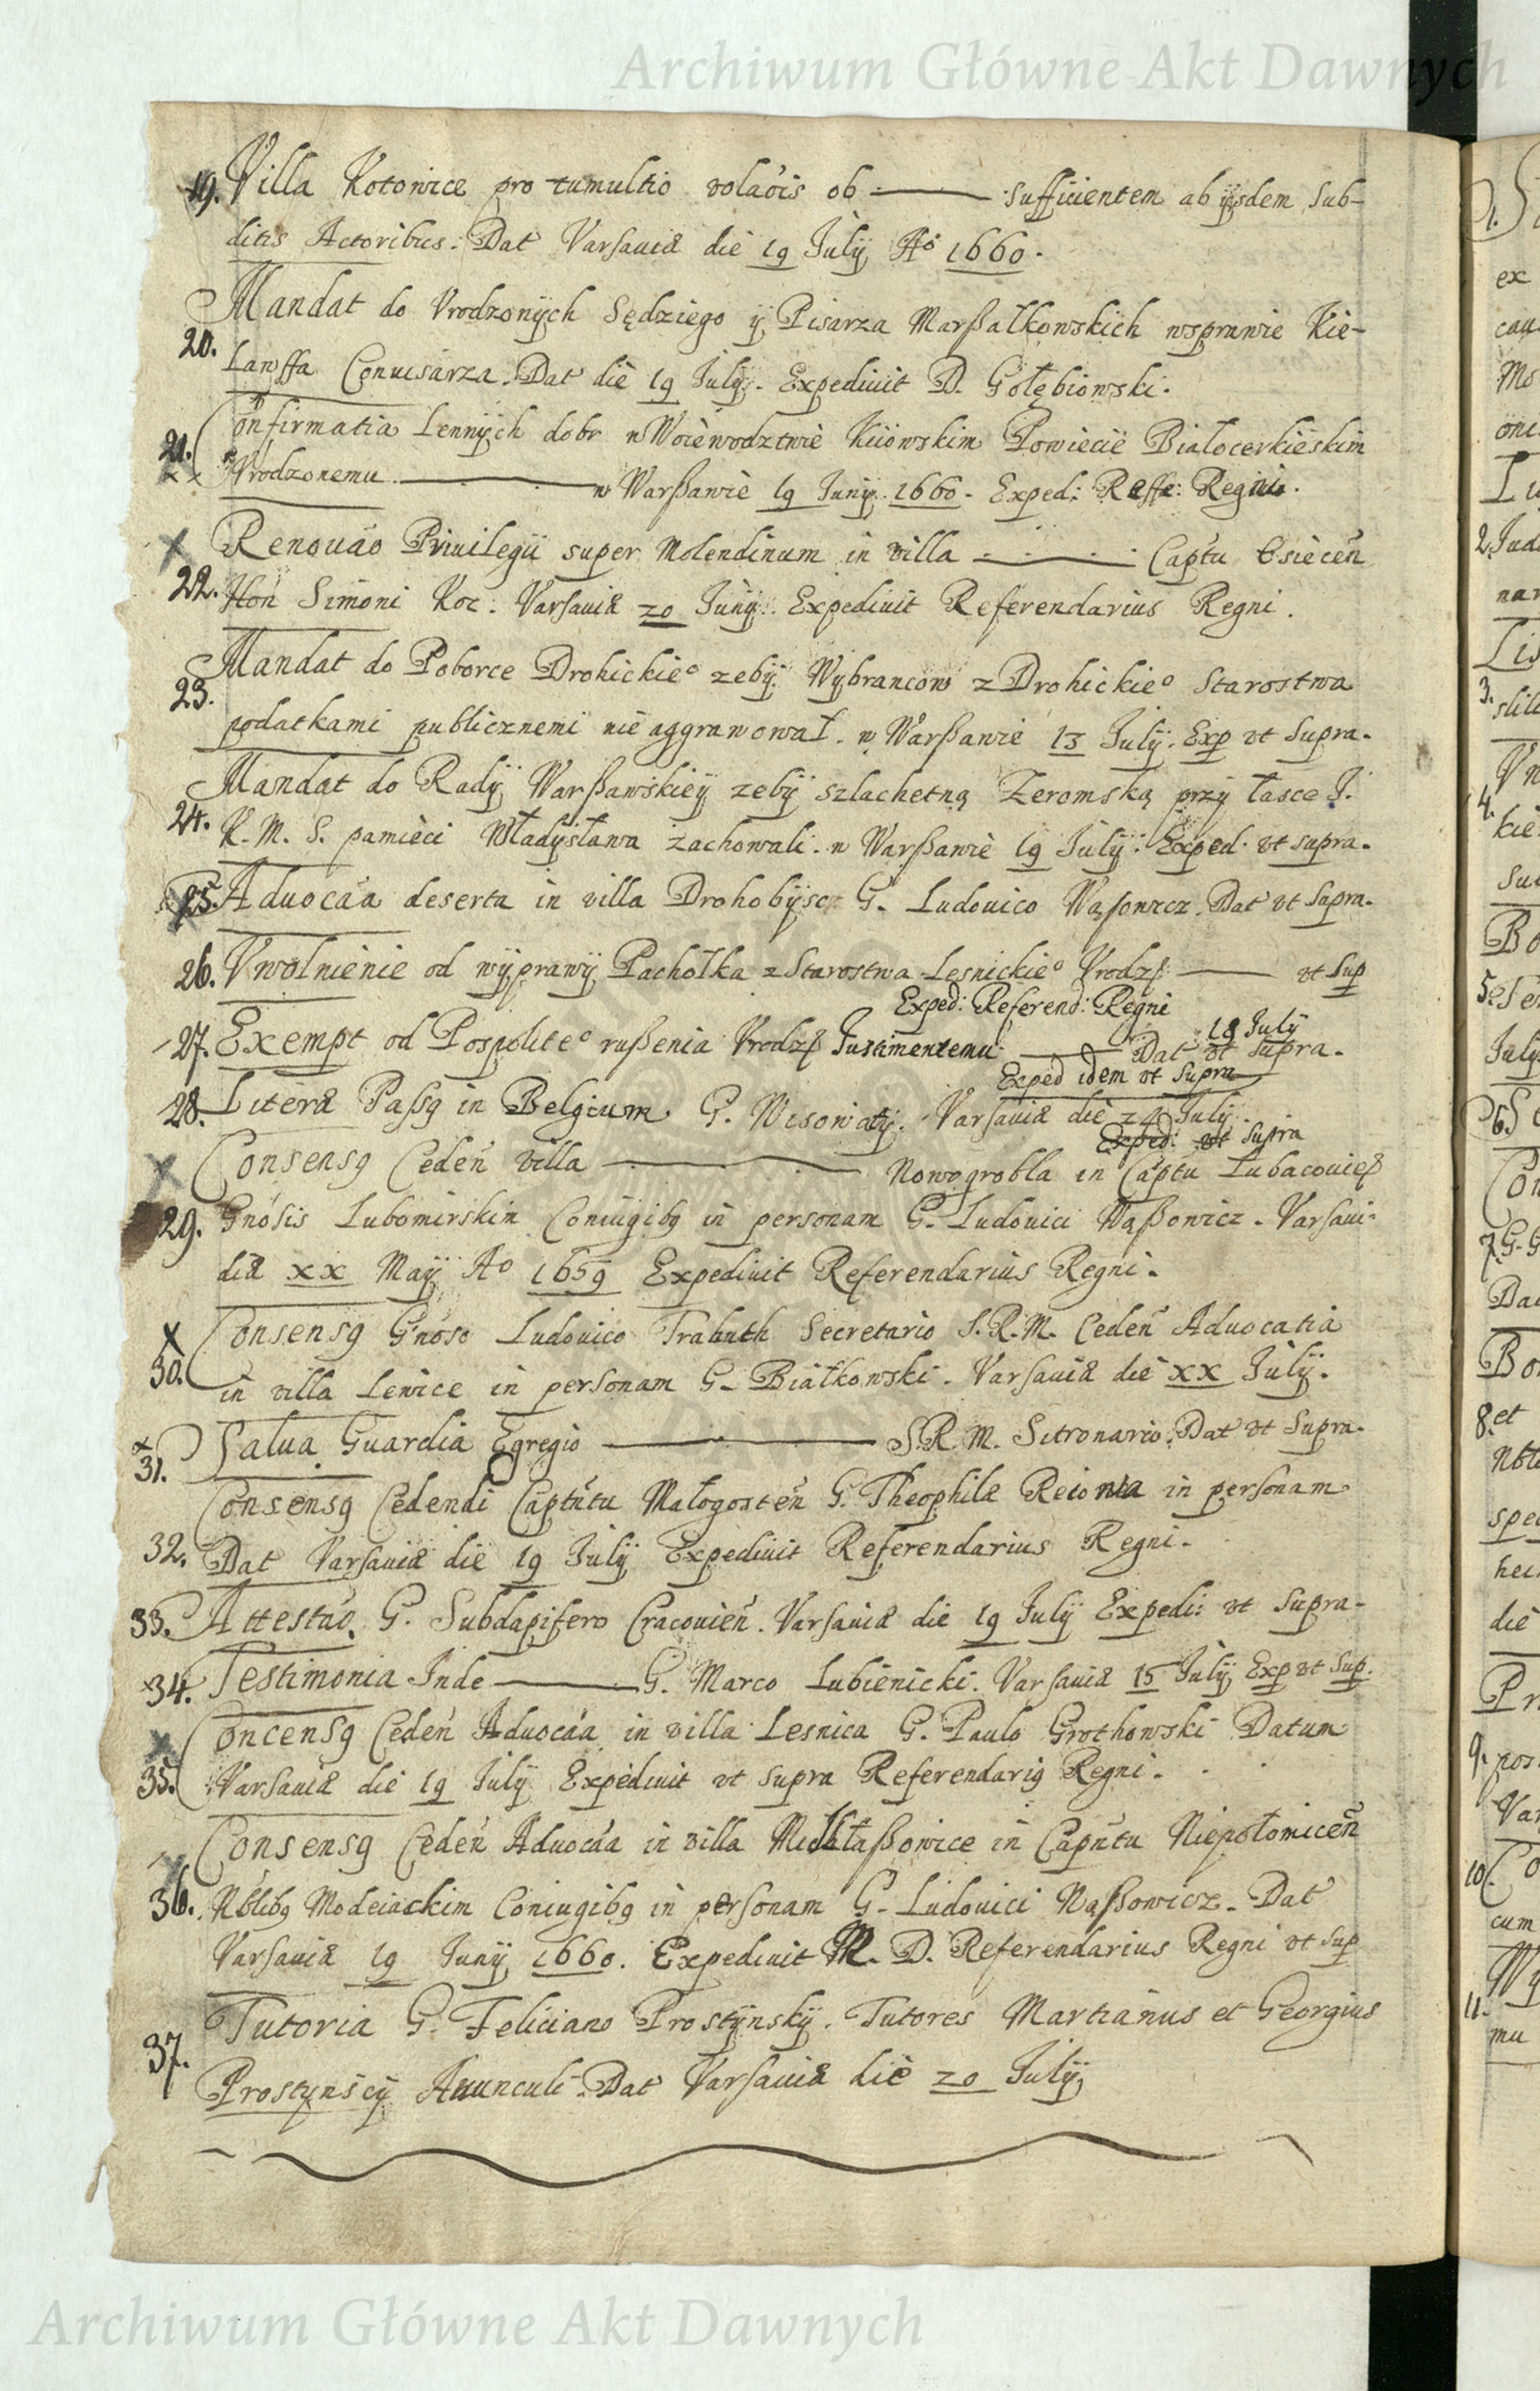 Archiwum Główne Akt Dawnych
19. Villa Kotowice pro tumultio ob sufficientem ab ijsdem Sub-
ditis Actoribus. Dat Varsaviæ die 19 Julÿ Aº 1660.
20. Mandat do Vrodzonÿch Sędziego ÿ Pisarza Marßałkowskich wsprawie Kie-
lawffa. Dat die 19 Julÿ. Expediuit D. Gołębiowski.
21. Confirmatia Lennÿch dobr w Woiewodztwie Kiiowskim Powiecie Białocerkieskim
Vrodzonemu w Warßawie 19 Junÿ 1660. Exped: Reffe: Regni.
22. Renouao Priuilegii super Molendinum in villa Captu Osiecen
Hon Simoni Koc. Varsauiæ 20 Junÿ. Expediuit Referendarius Regni.
23. Mandat do Poborce Drohickieº zebÿ Wÿbrancow z Drohickieº Starostwa
podatkami publicznemi nie aggrawował. w Warßawie 13 Julÿ. Exp vt Supra.
24. Mandat do Radÿ Warßawskieÿ zebÿ szlachetną Zeromską przÿ łasce J.
K. M. S. pamięci Władysława zachowali. w Warßawie 19 Julÿ. Exped. vt supra.
25. Aduocáa deserta in villa Drohobÿsc G. Ludouico Wąsowicz. Dat vt Supra.
26. Vwolnienie od wÿprawÿ Pachołka z Starostwa Lesnickieº Vrodz vt Sup
Exped: Referend: Regni
27. Exempt od Pospoliteº rußenia Vrodz Justimentemu Dat vt supra.
18 July
Exped idem vt Supra
28. Literæ Passq in Belgium G. Wisowatÿ. Varsauiæ die 24 Julÿ.
Exped: vt Supra
29. Consensq Ceden villa Nowogrobla in Captu Lubaconien
Gnosis Lubomirskim Coniugibq in personam G. Ludouici Waßowicz. Varsaui-
diæ xx Maÿ Aº 1659 Expediuit Referendarius Regni.
30. Consensq Gnoso Ludouico Trabuth Secretario S.R.M. Ceden Aduocatia
in villa Lewice in personam G. Białkowski. Varsauiæ die xx Julÿ.
31. Salua Guardia Egregio S.R.M. Sitronario. Dat vt Supra.
32. Consensq Cedendi Captutu Małogosten G. Theophilæ Reiowa in personam
Dat Varsauiæ die 19 Julÿ Expediuit Referendarius Regni.
33. Attestuo G. Subdapifero Cracouien. Varsauiæ die 19 Julÿ Expedi: vt Supra.
34. Testimonia Inde G. Marco Lubienicki. Varsauiæ 15 Julÿ Exp vt Sup.
35. Concensq Ceden Aduocáa in villa Lesnica G. Paulo Grothowski Datum
Varsauiæ die 19 Julÿ Expediuit vt Supra Referendariq Regni.
36. Consensq Ceden Aduocáa in villa in Capntu Niepołomicen
Nblibq Modeiackim Coniugibq in personam G. Ludouici Waßowicz. Dat
Varsauiæ 19 Junÿ 1660. Expediuit M. D. Referendarius Regni vt Sup
37. Tutoria G. Feliciano Prostÿnskÿ. Tutores Martianus et Georgius
Prostynscÿ Auunculi. Dat Varsauiæ die 20 Julÿ
Archiwum Główne Akt Dawnych